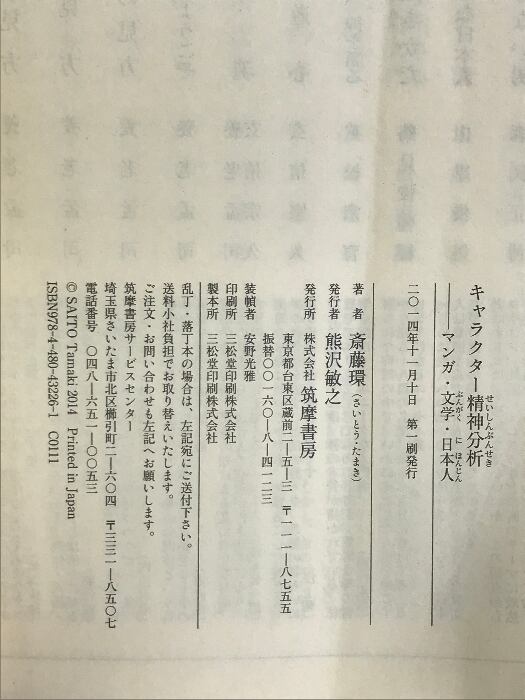 キャラクター精神分析
せいしんぶんせき
――マンガ・文学・日本人
ぶんがく に ほんじん
二〇一四年十一月十日 第一刷発行
著者 斎藤環(さいとう・たまき)
発行者 熊沢敏之
発行所 株式会社 筑摩書房
東京都台東区蔵前二―五―三 〒一一一―八七五五
振替〇〇一六〇―八―四一二三
装幀者 安野光雅
印刷所 三松堂印刷株式会社
製本所 三松堂印刷株式会社
乱丁・落丁本の場合は、左記宛にご送付下さい。
送料小社負担でお取り替えいたします。
ご注文・お問い合わせも左記へお願いします。
筑摩書房サービスセンター
埼玉県さいたま市北区櫛引町二―六〇四 〒三三一―八五〇七
電話番号 〇四八―六五一―〇〇五三
© SAITO Tamaki 2014 Printed in Japan
ISBN978-4-480-43226-1 C0111